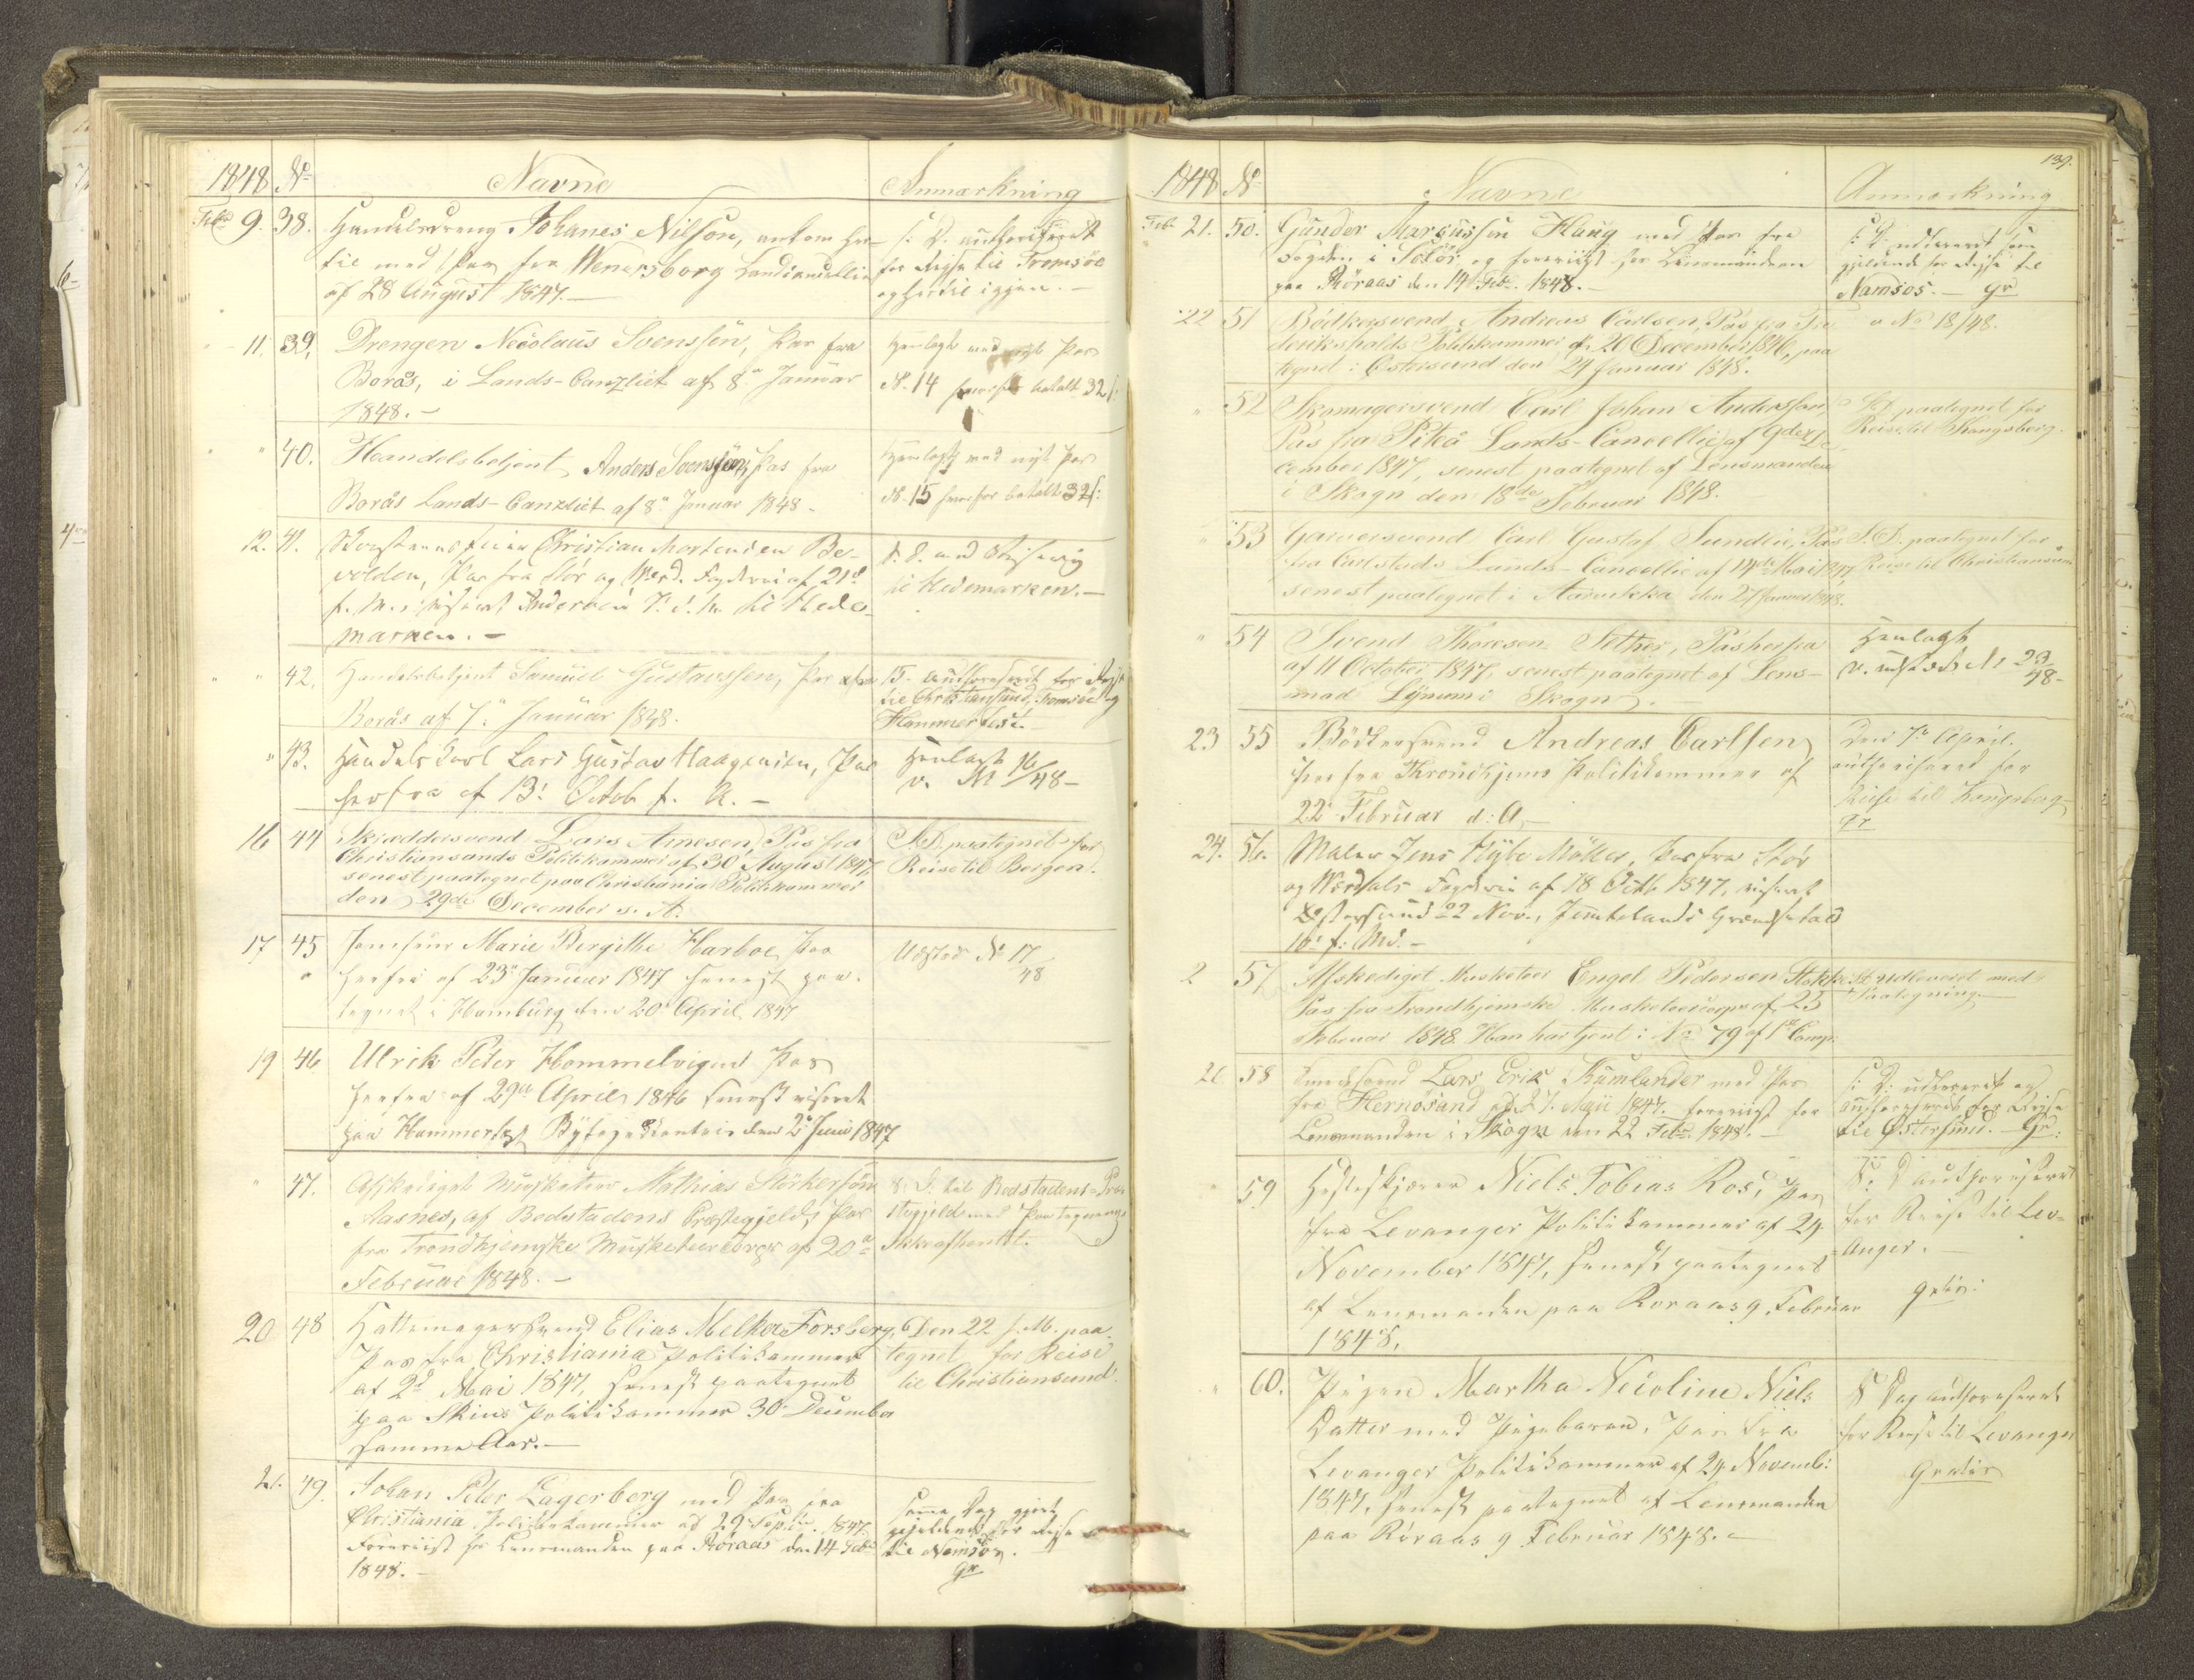 1848 No Navne Anmærkning
Feb. 9. 38. Handelsdreng Johanes Nilsson, ankom her-
til med Pas fra Wenersborg Landscancellie
af 28 August 1847. —
s. D. authoriseret
for Reise til Tromsöe
og hertil igjen. —
11. 39. Drengen Nicolaus Svenssen, Pas fra
Borås, i Lands-Canzliet af 8de Januar
1848. —
Henlagt med nyt Pas
No. 14 hvorfor betalt 32 s:
" 40. Handelsbetjent Anders Svensson, Pas fra
Borås Lands-Canzliet af 8de Januar 1848 -
Henlagt med nyt Pas
No. 15 hvorfor betalt 32 s:
12. 41. Christian Mortensen Be-
volden, Pas fra Stör og Værd. Fogderi af 21de
f. M., viseret til Hede-
marken. —
s. D. med
til Hedemarken. —
" 42. Handelsbetjent Samuel Gustavssen, Pas fra
Borås af 7de Januar 1848.
authoriseret for Reise
til Christiansund, Tromsöe og
Hammerfest
" 43. Handels Karl Lars Gustav Haagensen, Pas
herfra af 13. Octob f. A. —
Henlagt
v. No 16/48 —
16 44 Skræddersvend Lars Arnesen, Pas fra
Christiansands Politikammer af 30 August 1847,
senest paategnet paa Christiania Politikammer
den 29de December s. A.
S. D. paategnet for
Reise til Bergen.
17 45 Jomfrue Marie Bergithe Harboe, Pas
herfra af 23de Januar 1847 senest paa-
tegnet i Hamburg den 20. April 1847
Udsted No 17/48
19 46 Ulrich Peter Hommelvigen Pas
herfra af 29de April 1846 senest viseret
paa Hammerfest Byfogedcontoir den 2. Juni 1847
" 47. Afskediget Musketeer Mathias Störkersen
Aasnes, af Bodstadens Præstegjeld, Pas
fra Trondhjemske Musketeercorps af 20de
Februar 1848. —
s. D. til Bodstadens Præ-
stegjeld med Paategning
20 48 Hattemagersvend Elias Melker Forsberg,
Pas fra Christiania Politikammer
af 2d Mai 1847, senest paategnet
paa Skiens Politikammer 30 December
samme Aar. —
Den 22 s. M. paa-
tegnet for Reise
til Christiansund.
21. 49. Johan Peter Lagerberg med Pas fra
Christiania Politiekammer af 29 Septbr. 1847.
Foreviist for Lensmanden paa Röraas den 14 Feb.
1848. —
Samme Dag gjort
gjeldende for Reise
til Namsos. —
Gr
139.
1848 No Navne Anmærkning
Feb. 21. 50. Gunder Marcussen Haug med Pas fra
Fogden i Solör og foreviist for Lensmanden
paa Röraas den 14 Feb. 1848. —
s. D. udleveret som
gjeldende for Reise til
Namsos. — Gr
22 51 Bödkersvend Andreas Carlsen, Pas fra Fre-
derikshalds Politikammer af 20 December 1846, paa-
tegnet i Östersund den 24 Januar 1848.
No 18/48.
" 52 Skomagersvend Carl Johan Andersson,
Pas fra Piteå Lands-Cancellie af 9de De-
cember 1847, senest paategnet af Lensmanden
i Skogn den 18de Februar 1848.
S. D. paategnet for
Reise til Kongsberg.
" 53 Garversvend Carl Gustaf Sundin, Pas
fra Carlstads Lands-Cancellie af 14de Mai 1847,
senest paategnet i den 27 Januar 1848.
S. D. paategnet for
Reise til Christiansund
" 54 Svend Thoresen Sether, Pas herfra
af 11 October 1847, senest paategnet af Lens-
mand Lynum i Skogn. —
Henlagt
v. udsted No 23/48 -
23 55 Bödkersvend Andreas Carlsen,
Pas fra Throndhjems Politikammer af
22. Februar d: A. —
Den 7de April.
authoriseret for
Reise til Kongsberg
Gr
24. 56. Maler Jens Hybe Möller, Pas fra Stör
og Værdals Fogderi af 18 Octb 1847, viseret
Östersund 22 Nov., Jemtelands Grændsetold
16. f. Md. —
2 57 Afskediget Musketeer Engel Pedersen Stokke,
Pas fra Trondhjemske Musketeercorps af 25
Februar 1848. Han har tjent i No 79 af 1ste Comp:
S. D. udleveret med
Paategning. —
26 58 Smedesvend Lars Erik Kumlander med Pas
fra Hernösand af 27. Maji 1847. foreviist for
Lensmanden i Skogn den 22 Feb. 1848. —
s: D: udleveret og
authoriseret for Reise
til Östersund. — Gr.
" 59 Hesteskjærer Niels Tobias Ros, Pas
fra Levanger Politikammer af 24
November 1847, senest paategnet
af Lensmanden paa Roraas 9. Februar
1848.
S: D authoriseret
for Reise til Lev-
anger.
gratis.
" 60. Pigen Martha Nicoline Niels
Datter med Pigebarn, Pas fra
Levanger Politikammer af 24 Novemb:
1847, senest paategnet af Lensmanden
paa Röraas 9 Februar 1848. —
S Dag authoriseret
for Reise til Levanger
Gratis